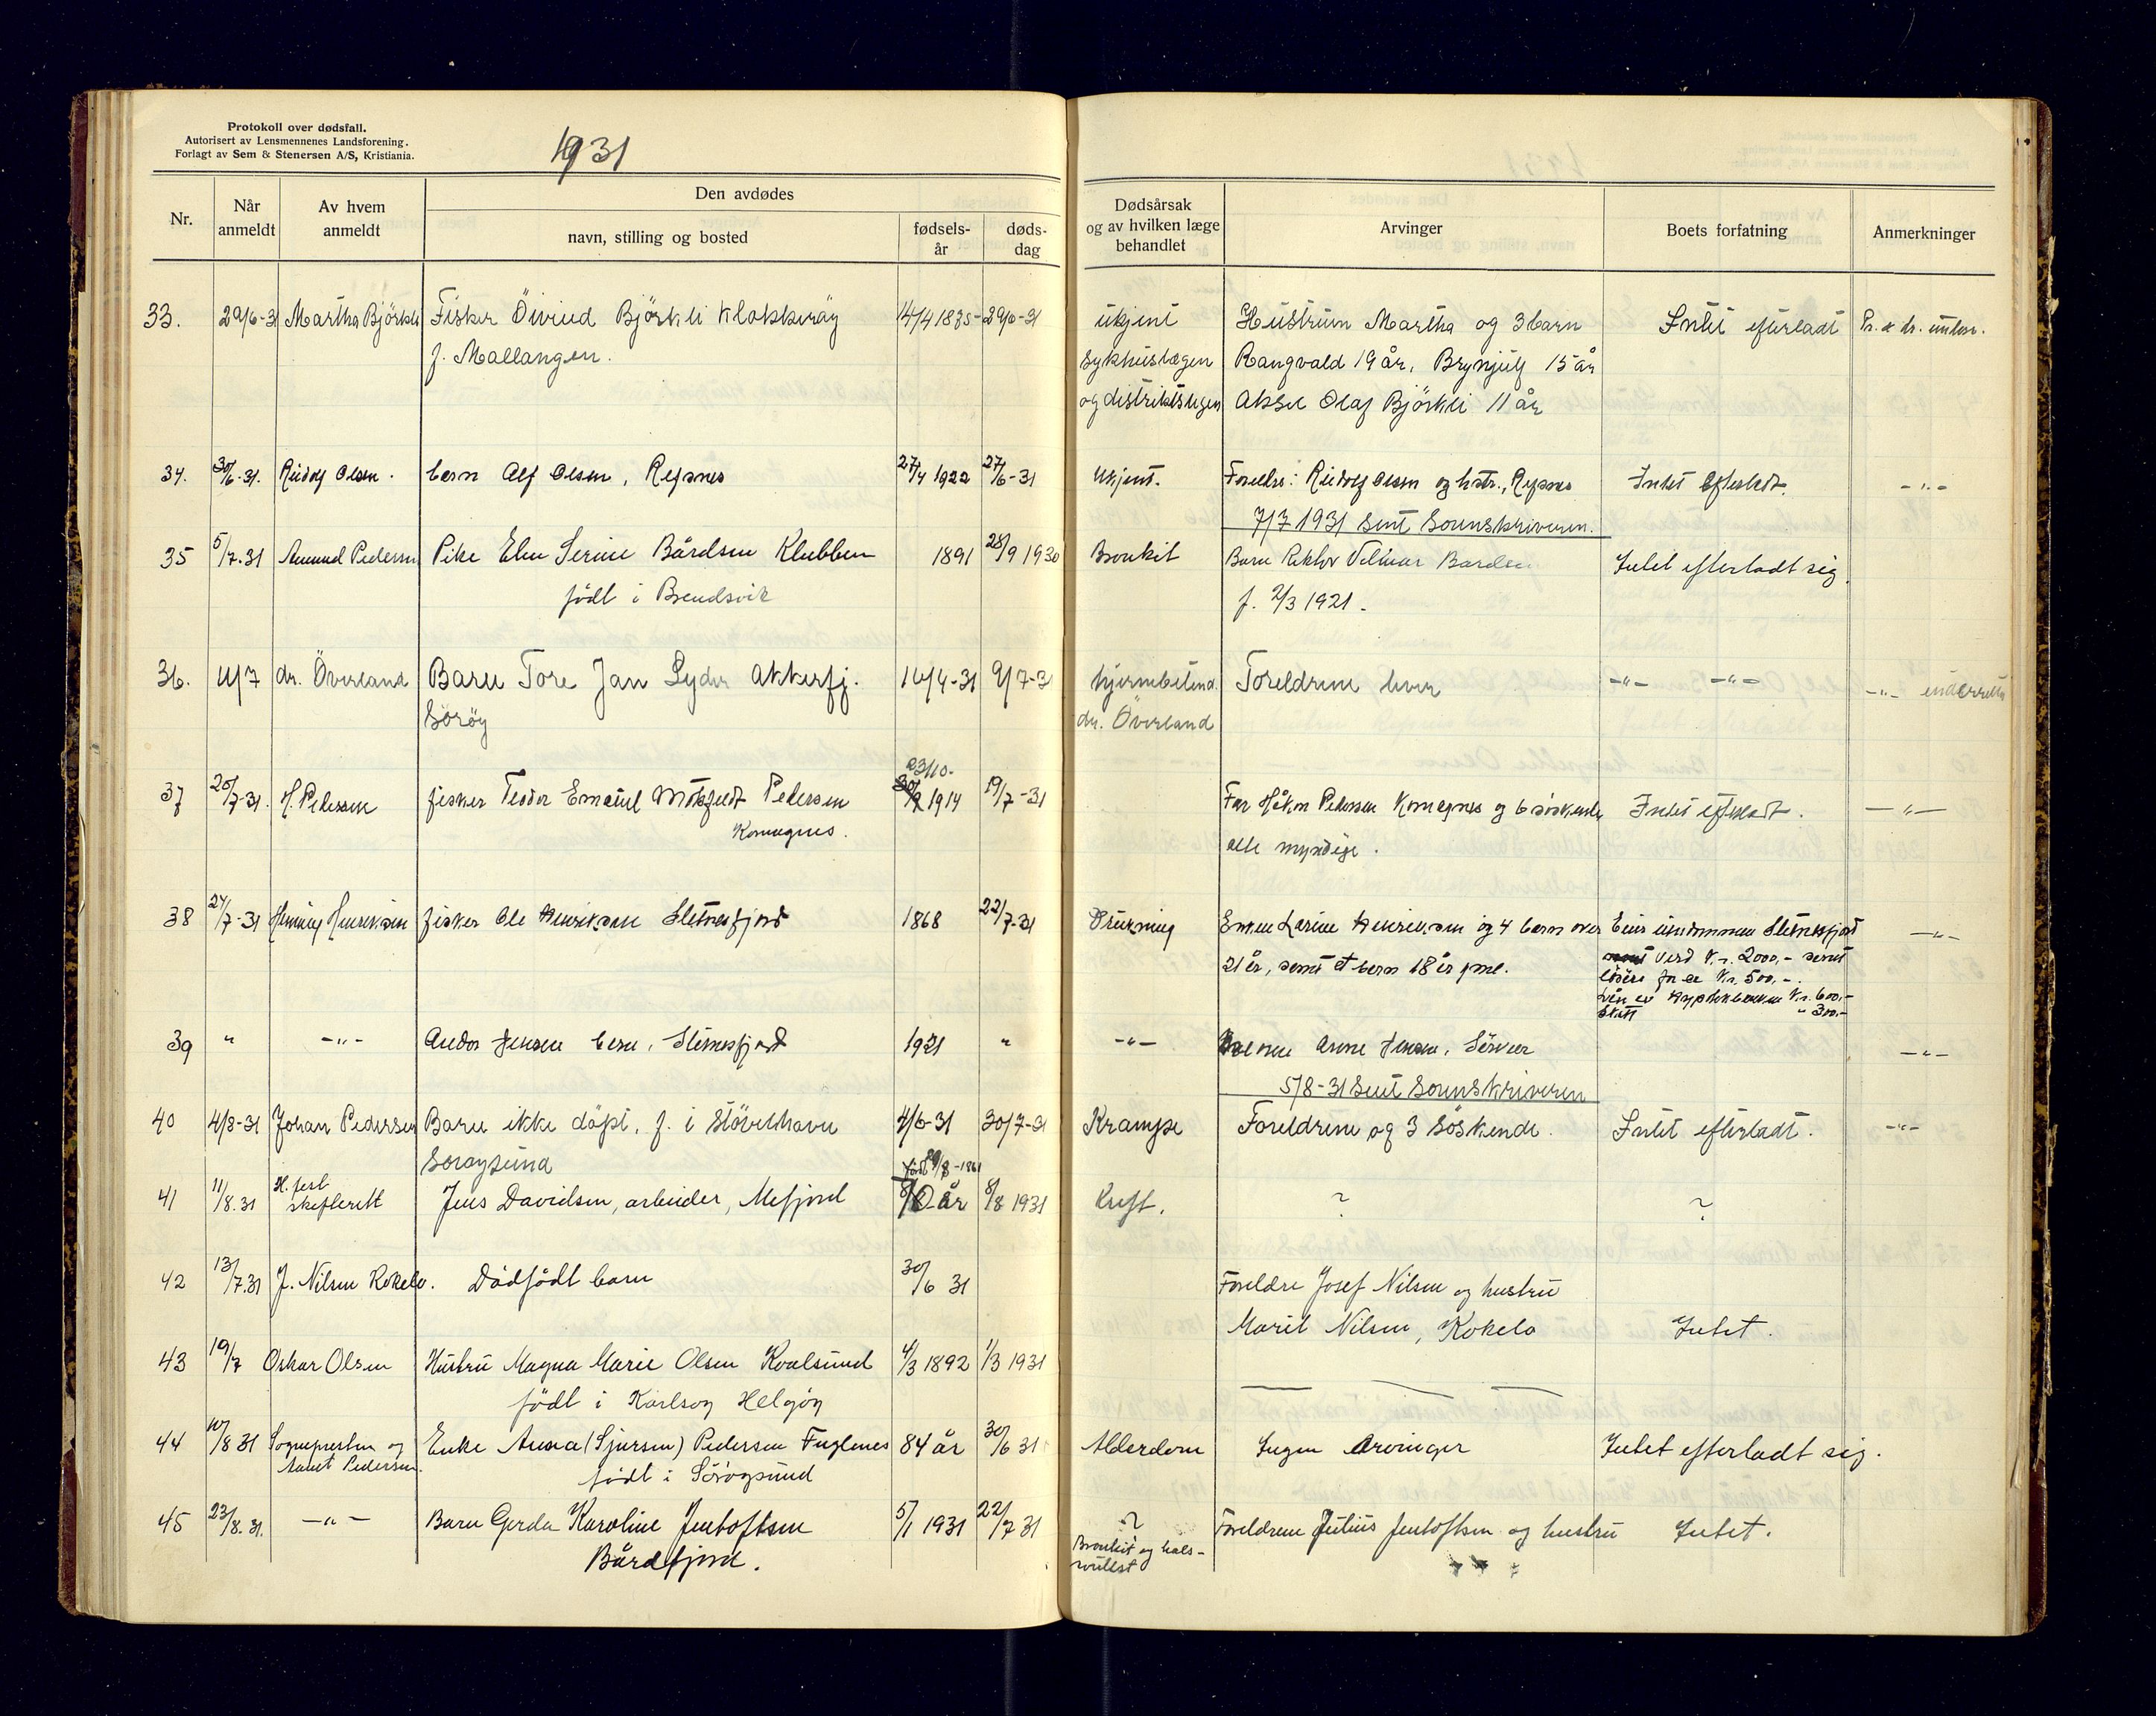 Protokoll over dødsfall.
Autorisert av Lensmennenes Landsforening.
Forlagt av Sem & Stenersen A/S, Kristiania.
1931
Nr.
Når anmeldt
Av hvem anmeldt
Den avdødes
navn, stilling og bosted
fødsels-
år
døds-
dag
Dødsårsak
og av hvilken læge
behandlet
Arvinger
Boets forfatning
Anmerkninger
33. 29/6-31 Martha Björkli Fisker Öivind Björkli Klokkeröy 14/4 1885- 29/6-31 ukjent Hustrum Martha og 3 barn Intet efterladt
f. Mallangen. sykhuslægen Rangvald 19 år, Brynjulf 15 år
og distriktslægen Aksel Olaf Björkli 11 år
34. 30/6-31. Rudolf Olsen. barn Alf Olsen, Repnes 27/4 1922 27/6-31 Ukjent. Foreldre: Rudolf Olsen og hstr., Repnes Intet efterladt. -"-
7/7 1931 sent Sorenskriveren.
35 5/7.31 Amund Pedersen Pike Elen Serine Bårdsen Klubben 1891 28/9 1930 Bronkit Barn Rektor Vilmar Bårdsen Intet efterladt sig.
födt i Brendsvik f. 2/3 1921.
36. 11/7 dr. Överland Barn Tore Jan Lyder Akkarfj. 16/4-31 9/7-31 hjernebetend. Foreldrene lever -"- -"- -"- underrettet
Söröy dr. Överland
23/10.
37 20/7-31. H. Pedersen fisker Teodor Emanuel Motzfeldt Pedersen 1914 19/7-31 Far Håkon Pedersen Komagnes og 6 söskende Intet efterladt. -"-
Komagnes. alle myndige.
38 24/7-31 Henning Henriksen fisker Ole Henriksen Sletnesfjord 1868 22/7-31 Drukning Enken Larine Henriksen og 4 barn over Eier eiendommen Sletnesfjord -"-
21 år, samt et barn 18 år gml. verd Kr. 2000,- samt
lösöre for ca Kr. 500,-.
Lån av Hypotekbanken Kr. 600,-
Skatt " 300,-
39 " -"- Andor Jensen barn, Sletnesfjord 1921 " -"- Anne Jensen, Sörvær -"-
5/8-31 Sent Sorenskriveren
40 4/8-31 Johan Pedersen Barn ikke döpt, f. i Stövelhavn 4/6-31 30/7-31 Krampe Foreldrene og 3 Söskende. Intet efterladt. -"-
Soröysund
födt 29/8-1861
41 11/8.31 H. fest skifterett Jens Davidsen, arbeider, Mefjord 80 år 8/8 1931 Kreft. ? ?
42 13/7.31 J. Nilsen Kokelv. Dödfödt barn 30/6 31 Foreldre Josef Nilsen og hustru
Marit Nilsen, Kokelv Intet.
43 19/7 Oskar Olsen Hustru Magna Marie Olsen Kvalsund 4/3 1892 1/3 1931
födt i Karlsöy Helgöy
44 10/8 31 Sognepresten og Pedersen. Enke Anna (Sjursen) Pedersen Fuglenes 84 år 30/6 31 Alderdom Ingen Arvinger Intet efterladt sig.
födt i Söröysund
45 23/8.31. -"- Barn Gerda Karoline Jentoftsen 5/1 1931 22/7 31 ? Foreldrene Julius Jentoftsen og hustru Intet.
Bårdfjord. Bronkit og hals-